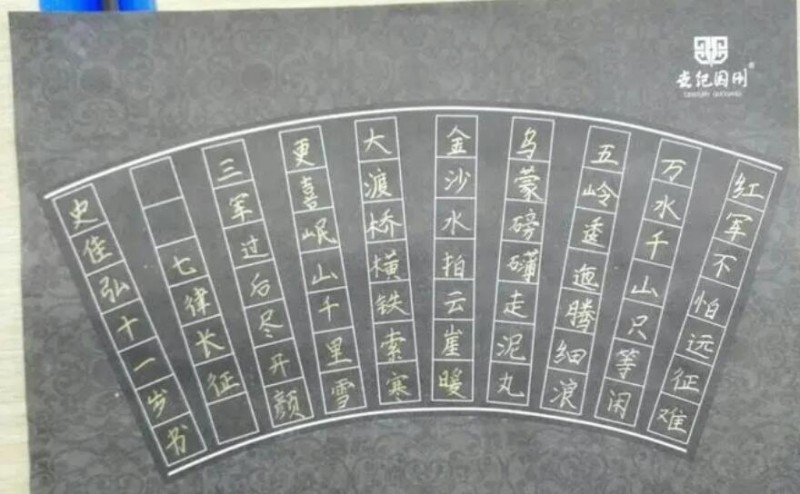 红军不怕远征难
万水千山只等闲
五岭逶迤腾细浪
乌蒙磅礴走泥丸
金沙水拍云崖暖
大渡桥横铁索寒
更喜岷山千里雪
三军过后尽开颜
七律长征
史佳弘十一岁书
世纪国州